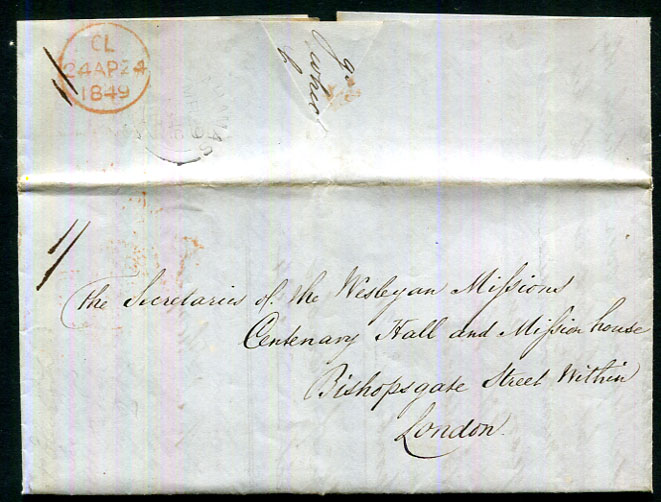 CL
24AP24
1849
The Secretaries of the Wesleyan Missions
Centenary Hall and Mission house
Bishopsgate Street Within
London.